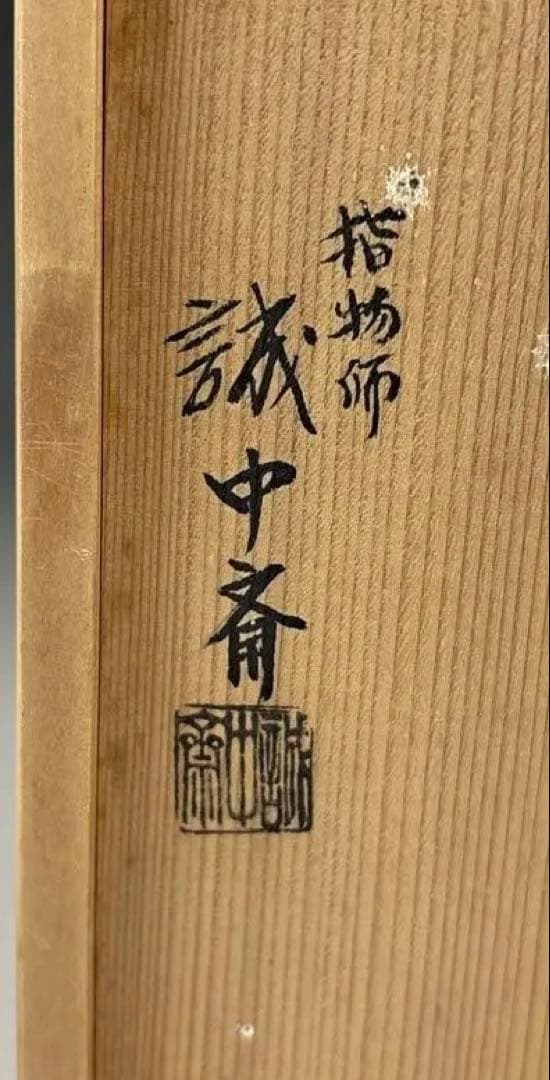 指物師
誠中斎
誠中斎